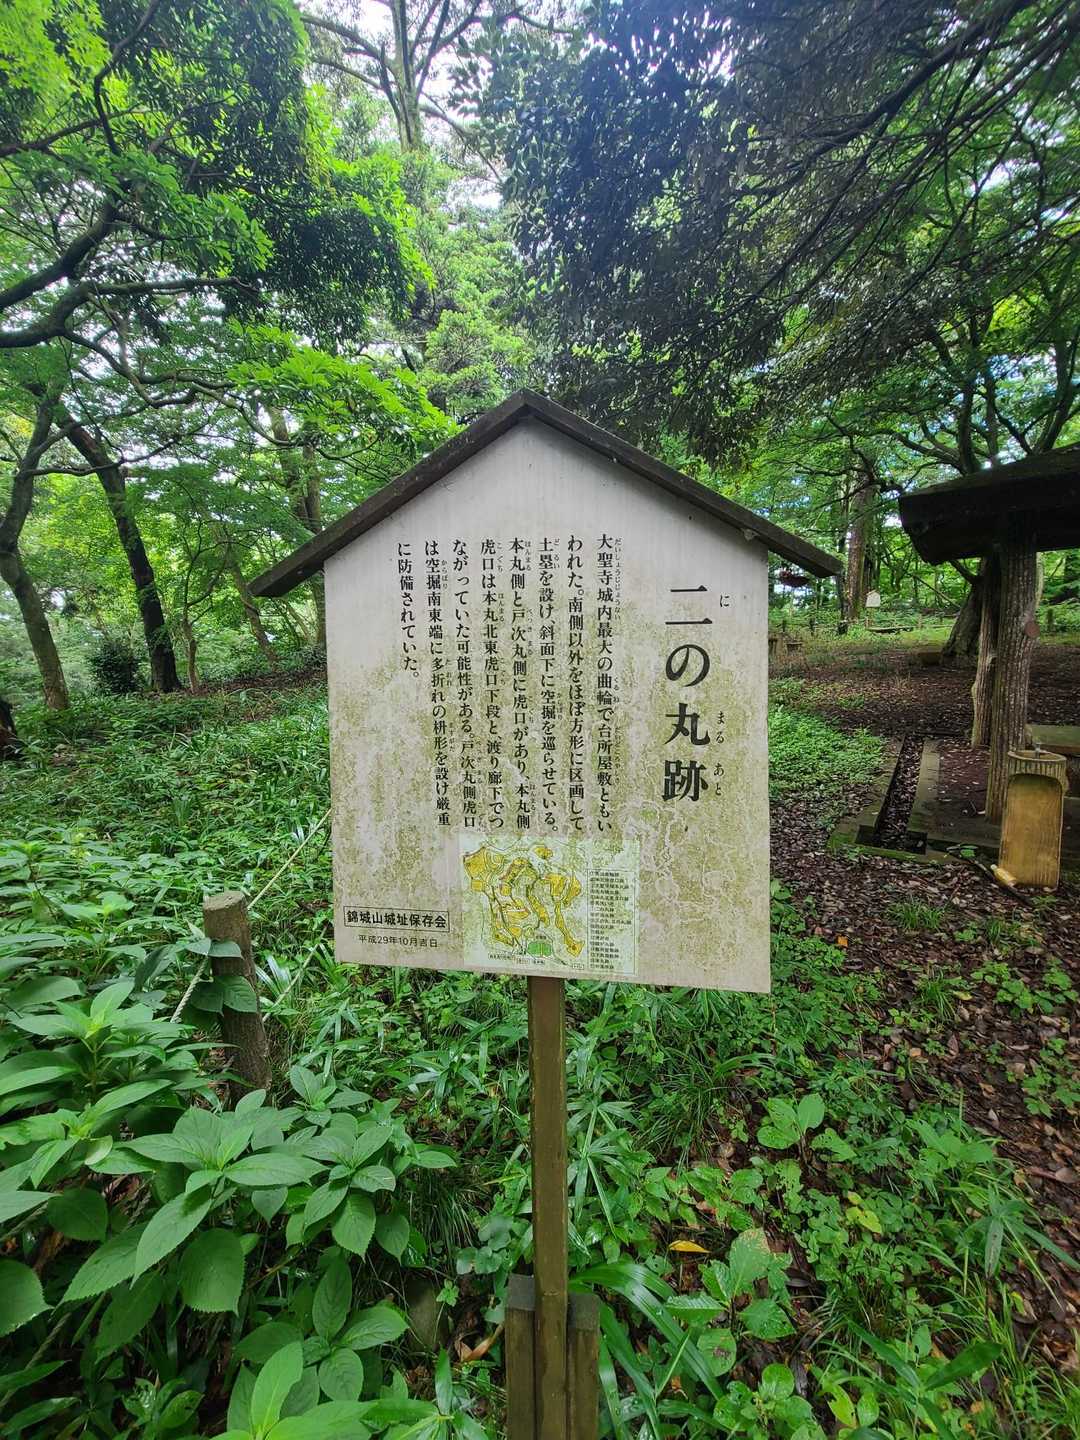 二の丸跡
に まる あと
大聖寺城内最大の曲輪で台所屋敷ともい
われた。南側以外をほぼ方形に区画して
土塁を設け、斜面下に空掘を巡らせている。
本丸側と戸次丸側に虎口があり、本丸側
虎口は本丸北東虎口下段と、渡り廊下でつ
ながっていた可能性がある。戸次丸側虎口
は空掘南東端に多折れの枡形を設け厳重
に防備されていた。
錦城山城址保存会
平成29年10月吉日